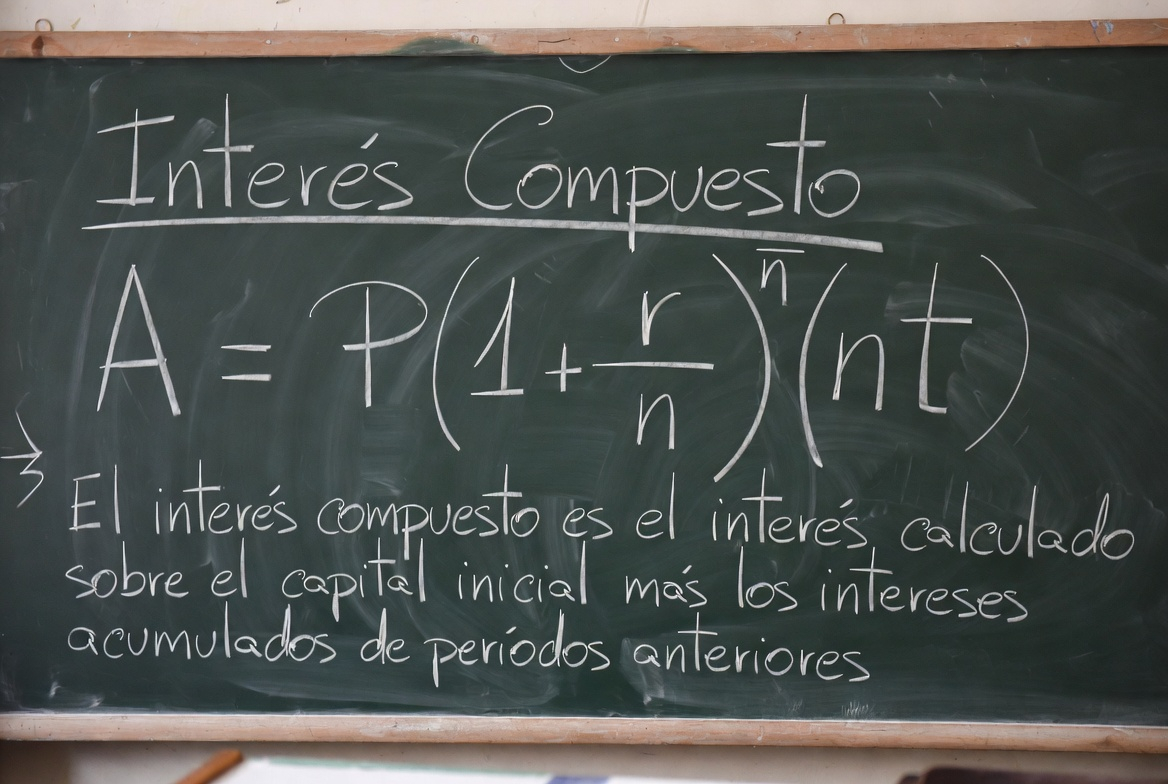 Interés Compuesto
A = P(1 + r/n)^n̅ (nt)
El interés compuesto es el interés calculado
sobre el capital inicial más los intereses
acumulados de períodos anteriores